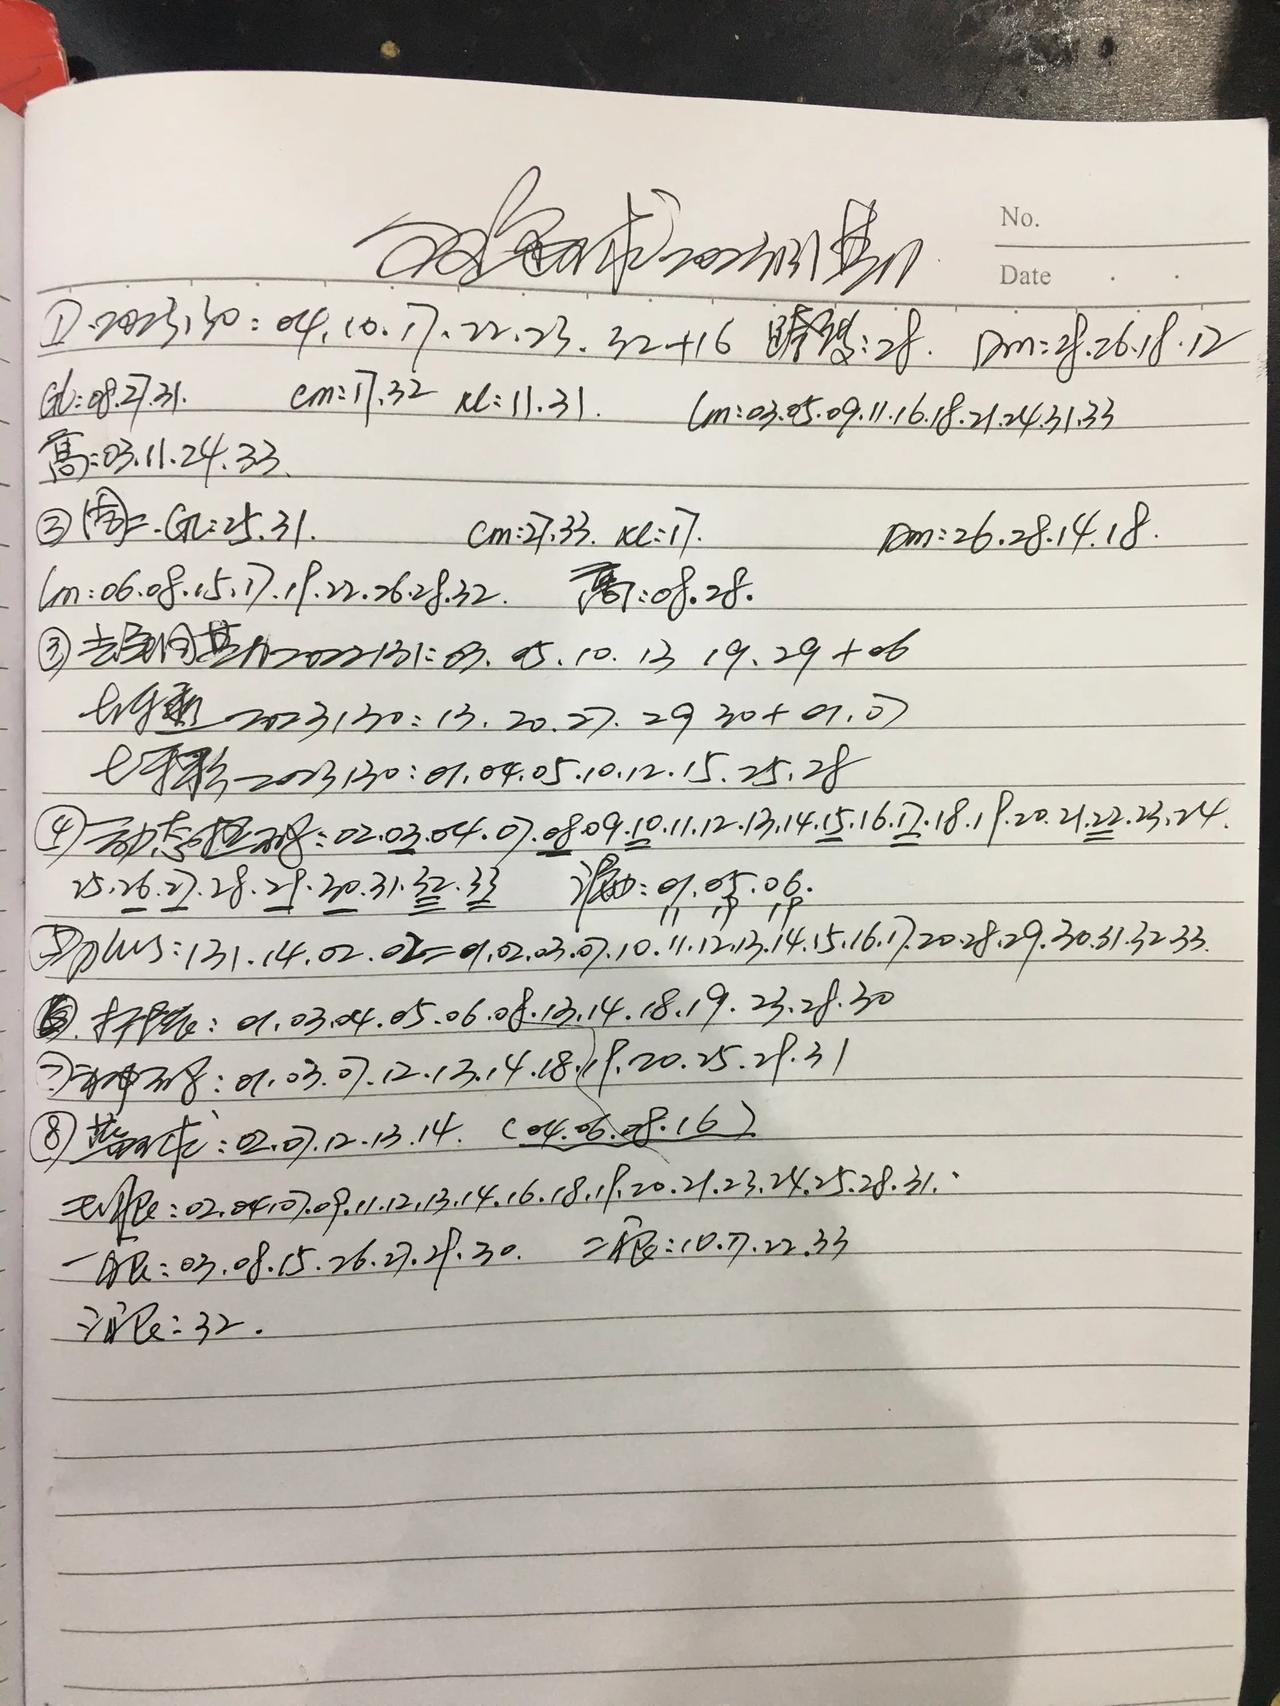 双色球2023131期
No.
Date
① 2023130: 04.10.17.22.23.32+16 跨度:28. Dm=28.26.18.12
GL:08.27.31. cm:17.32 KL:11.31. Lm:03.05.09.11.16.18.21.24.31.33
高:03.11.24.33.
② GL:25.31. cm:27.33. KL:17. Dm=26.28.14.18.
Lm:06.08.15.17.19.22.26.28.32. 高:08.28.
③ 去年同期2022131:03.05.10.13 19.29+06
七乐 2023130:13.20.27.29 30+01.07
七 2023130:01.04.05.10.12.15.25.28
④ 动态:02.03.04.07.08.09.10.11.12.13.14.15.16.17.18.19.20.21.22.23.24.
25.26.27.28.29.30.31.32.33 :01.05.06.
11 17 19
⑤ plus:131.14.02.02=01.02.03.07.10.11.12.13.14.15.16.17.20.28.29.30.31.32.33.
⑥ :01.03.04.05.06.08.13.14.18.19.23.28.30
⑦ :01.03.07.12.13.14.18.19.20.25.29.31
⑧ 蓝球:02.07.12.13.14. (04.06.08.16)
:02.04.07.09.11.12.13.14.16.18.19.20.21.23.24.25.28.31.
一:03.08.15.26.27.29.30. 二:10.17.22.33
三:32.